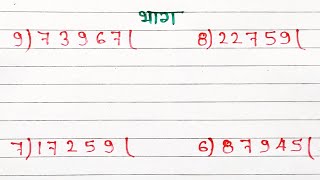 भाग
9) 7 3 9 6 7 ( 8) 2 2 7 5 9 (
7) 1 7 2 5 9 ( 6) 8 7 9 4 5 (